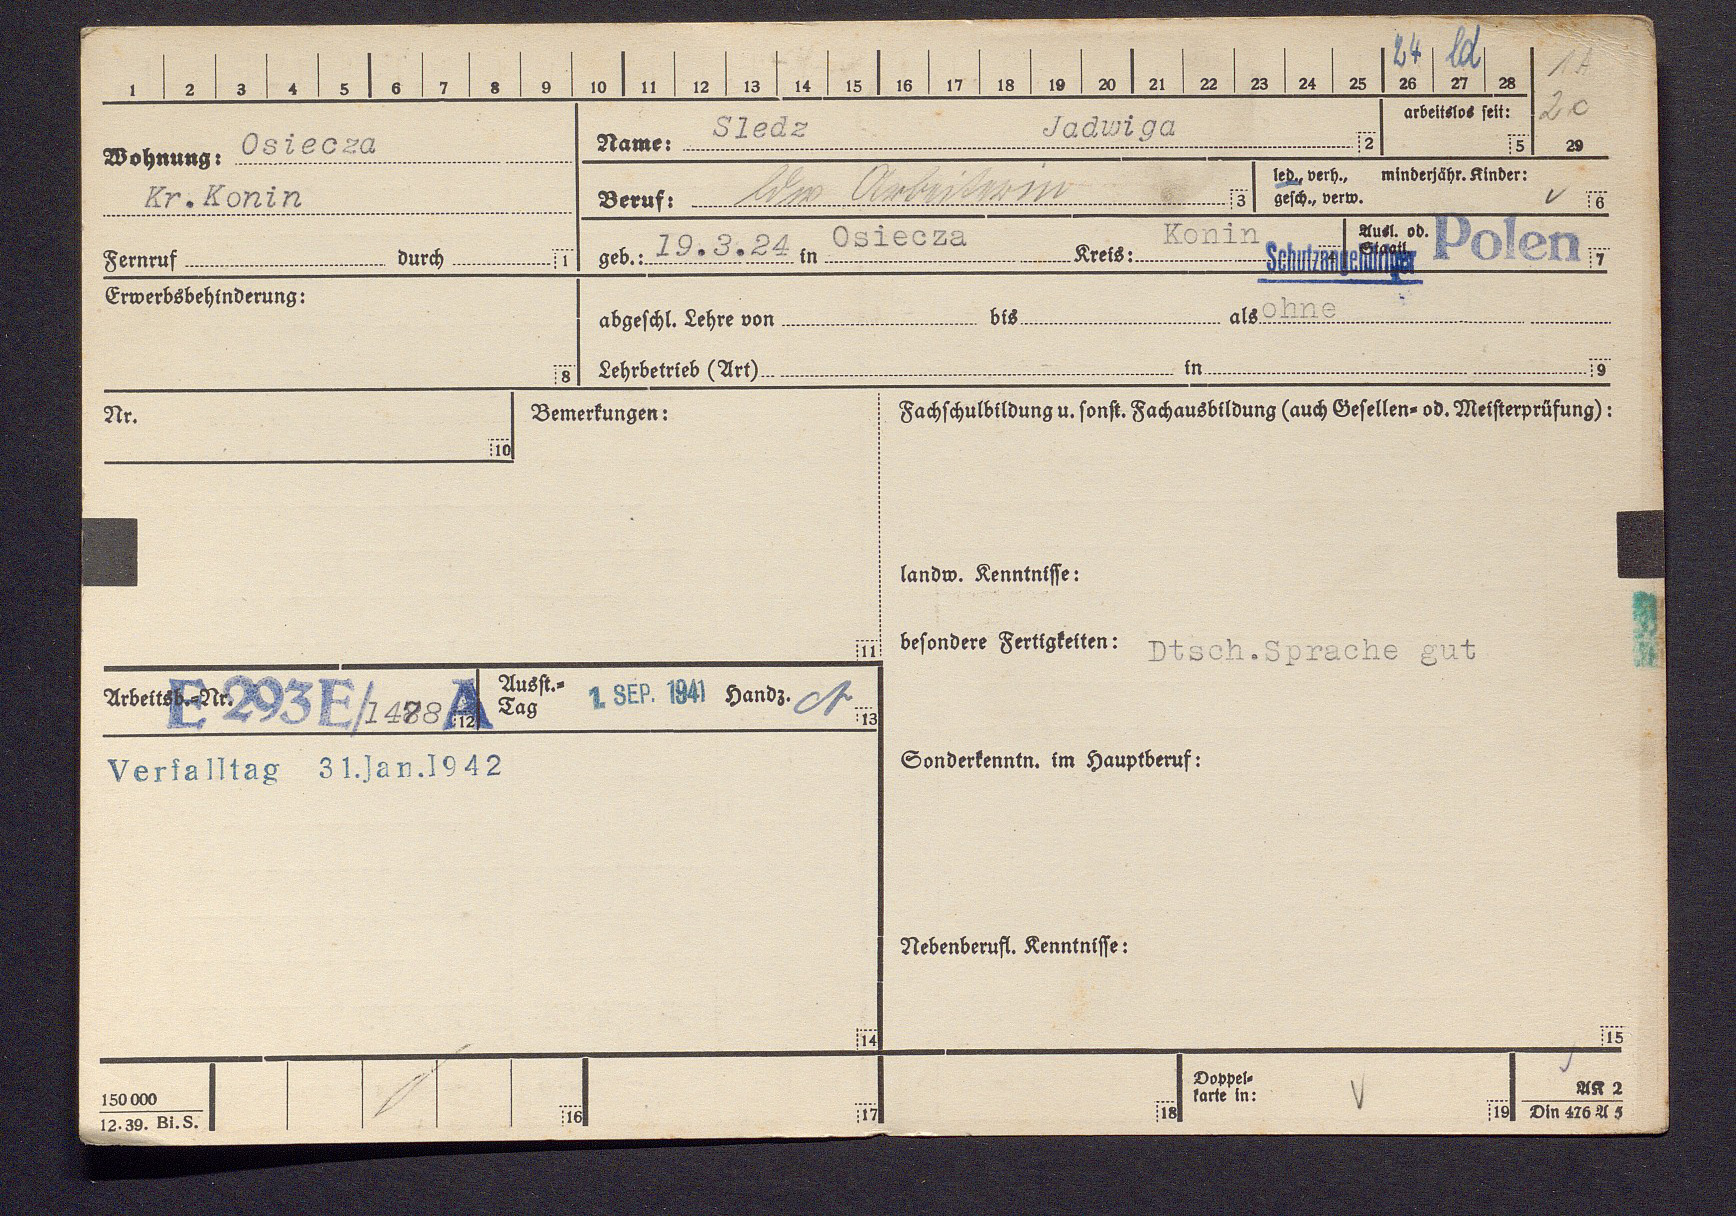 24 ld
1 2 3 4 5 6 7 8 9 10 11 12 13 14 15 16 17 18 19 20 21 22 23 24 25 26 27 28
1A
2c
29
Wohnung: Osiecza
Kr. Konin
Fernruf durch 1
Name: Sledz Jadwiga 2
arbeitslos seit: 5
Beruf: Arbeiterin 3
led., verh., gesch., verw.
minderjähr. Kinder: 6
geb.: 19.3.24 in Osiecza Kreis: Konin 4
Schutzangehöriger
Ausl. od. Staatl. Polen 7
Erwerbsbehinderung:
8
abgeschl. Lehre von bis als ohne
Lehrbetrieb (Art) in 9
Nr.
10
Bemerkungen:
11
Fachschulbildung u. sonst. Fachausbildung (auch Gesellen= od. Meisterprüfung):
landw. Kenntnisse:
besondere Fertigkeiten: Dtsch.Sprache gut
Arbeitsb.-Nr. E 293E/1488 A 12
Ausst.= Tag 1. SEP. 1941 Handz. 13
Verfalltag 31.Jan.1942
14
Sonderkenntn. im Hauptberuf:
Nebenberufl. Kenntnisse:
15
150 000
12. 39. Bi. S.
16
17
18
Doppel=
karte in:
19
AK 2
Din 476 A 5